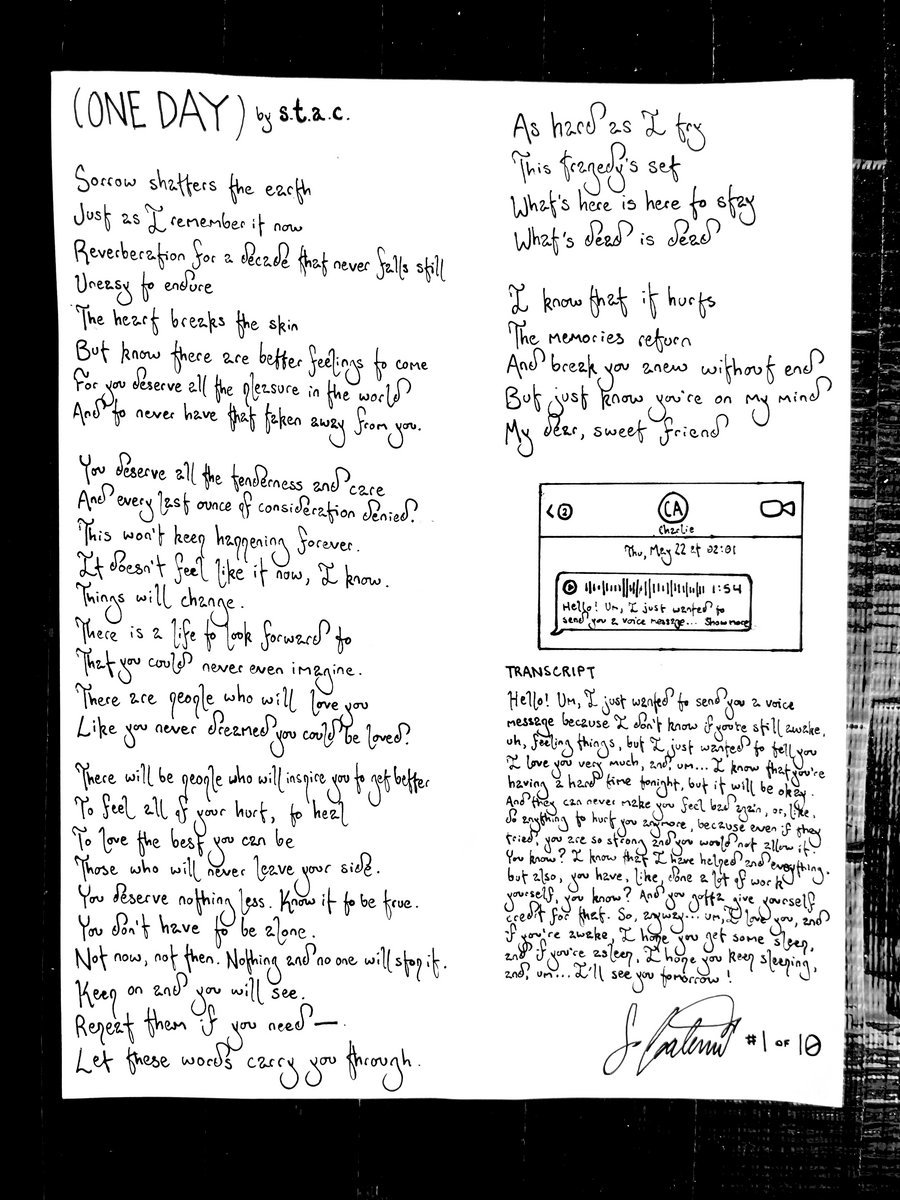 (ONE DAY) by s.t.a.c.
Sorrow shatters the earth
Just as I remember it now
Reverberation for a decade that never falls still
Uneasy to endure
The heart breaks the skin
But know there are better feelings to come
For you deserve all the pleasure in the world
And to never have that taken away from you.
You deserve all the tenderness and care
And every last ounce of consideration denied.
This won't keep happening forever.
It doesn't feel like it now, I know.
Things will change.
There is a life to look forward to
That you could never even imagine.
There are people who will love you
Like you never dreamed you could be loved.
There will be people who will inspire you to get better
To feel all of your hurt, to heal
To love the best you can be
Those who will never leave your side.
You deserve nothing less. Know it to be true.
You don't have to be alone.
Not now, not then. Nothing and no one will stop it.
Keep on and you will see.
Repeat them if you need —
Let these words carry you through.
As hard as I try
This tragedy's set
What's here is here to stay
What's dead is dead
I know that it hurts
The memories return
And break you anew without end
But just know you're on my mind
My dear, sweet friend
< 2
CA
Charlie
Thu, May 22 at 02:01
1:54
Hello! Um, I just wanted to
send you a voice message... Show more
TRANSCRIPT
Hello! Um, I just wanted to send you a voice
message because I don't know if you're still awake,
uh, feeling things, but I just wanted to tell you
I love you very much, and, um... I know that you're
having a hard time tonight, but it will be okay.
And they can never make you feel bad again, or, like,
do anything to hurt you anymore, because even if they
tried, you are so strong and you would not allow it.
You know? I know that I have helped and everything.
but also, you have, like, done a lot of work
yourself, you know? And you gotta give yourself
credit for that. So, anyway... um, I love you, and
if you're awake, I hope you get some sleep,
and if you're asleep, I hope you keep sleeping,
and, um... I'll see you tomorrow!
#1 OF 10